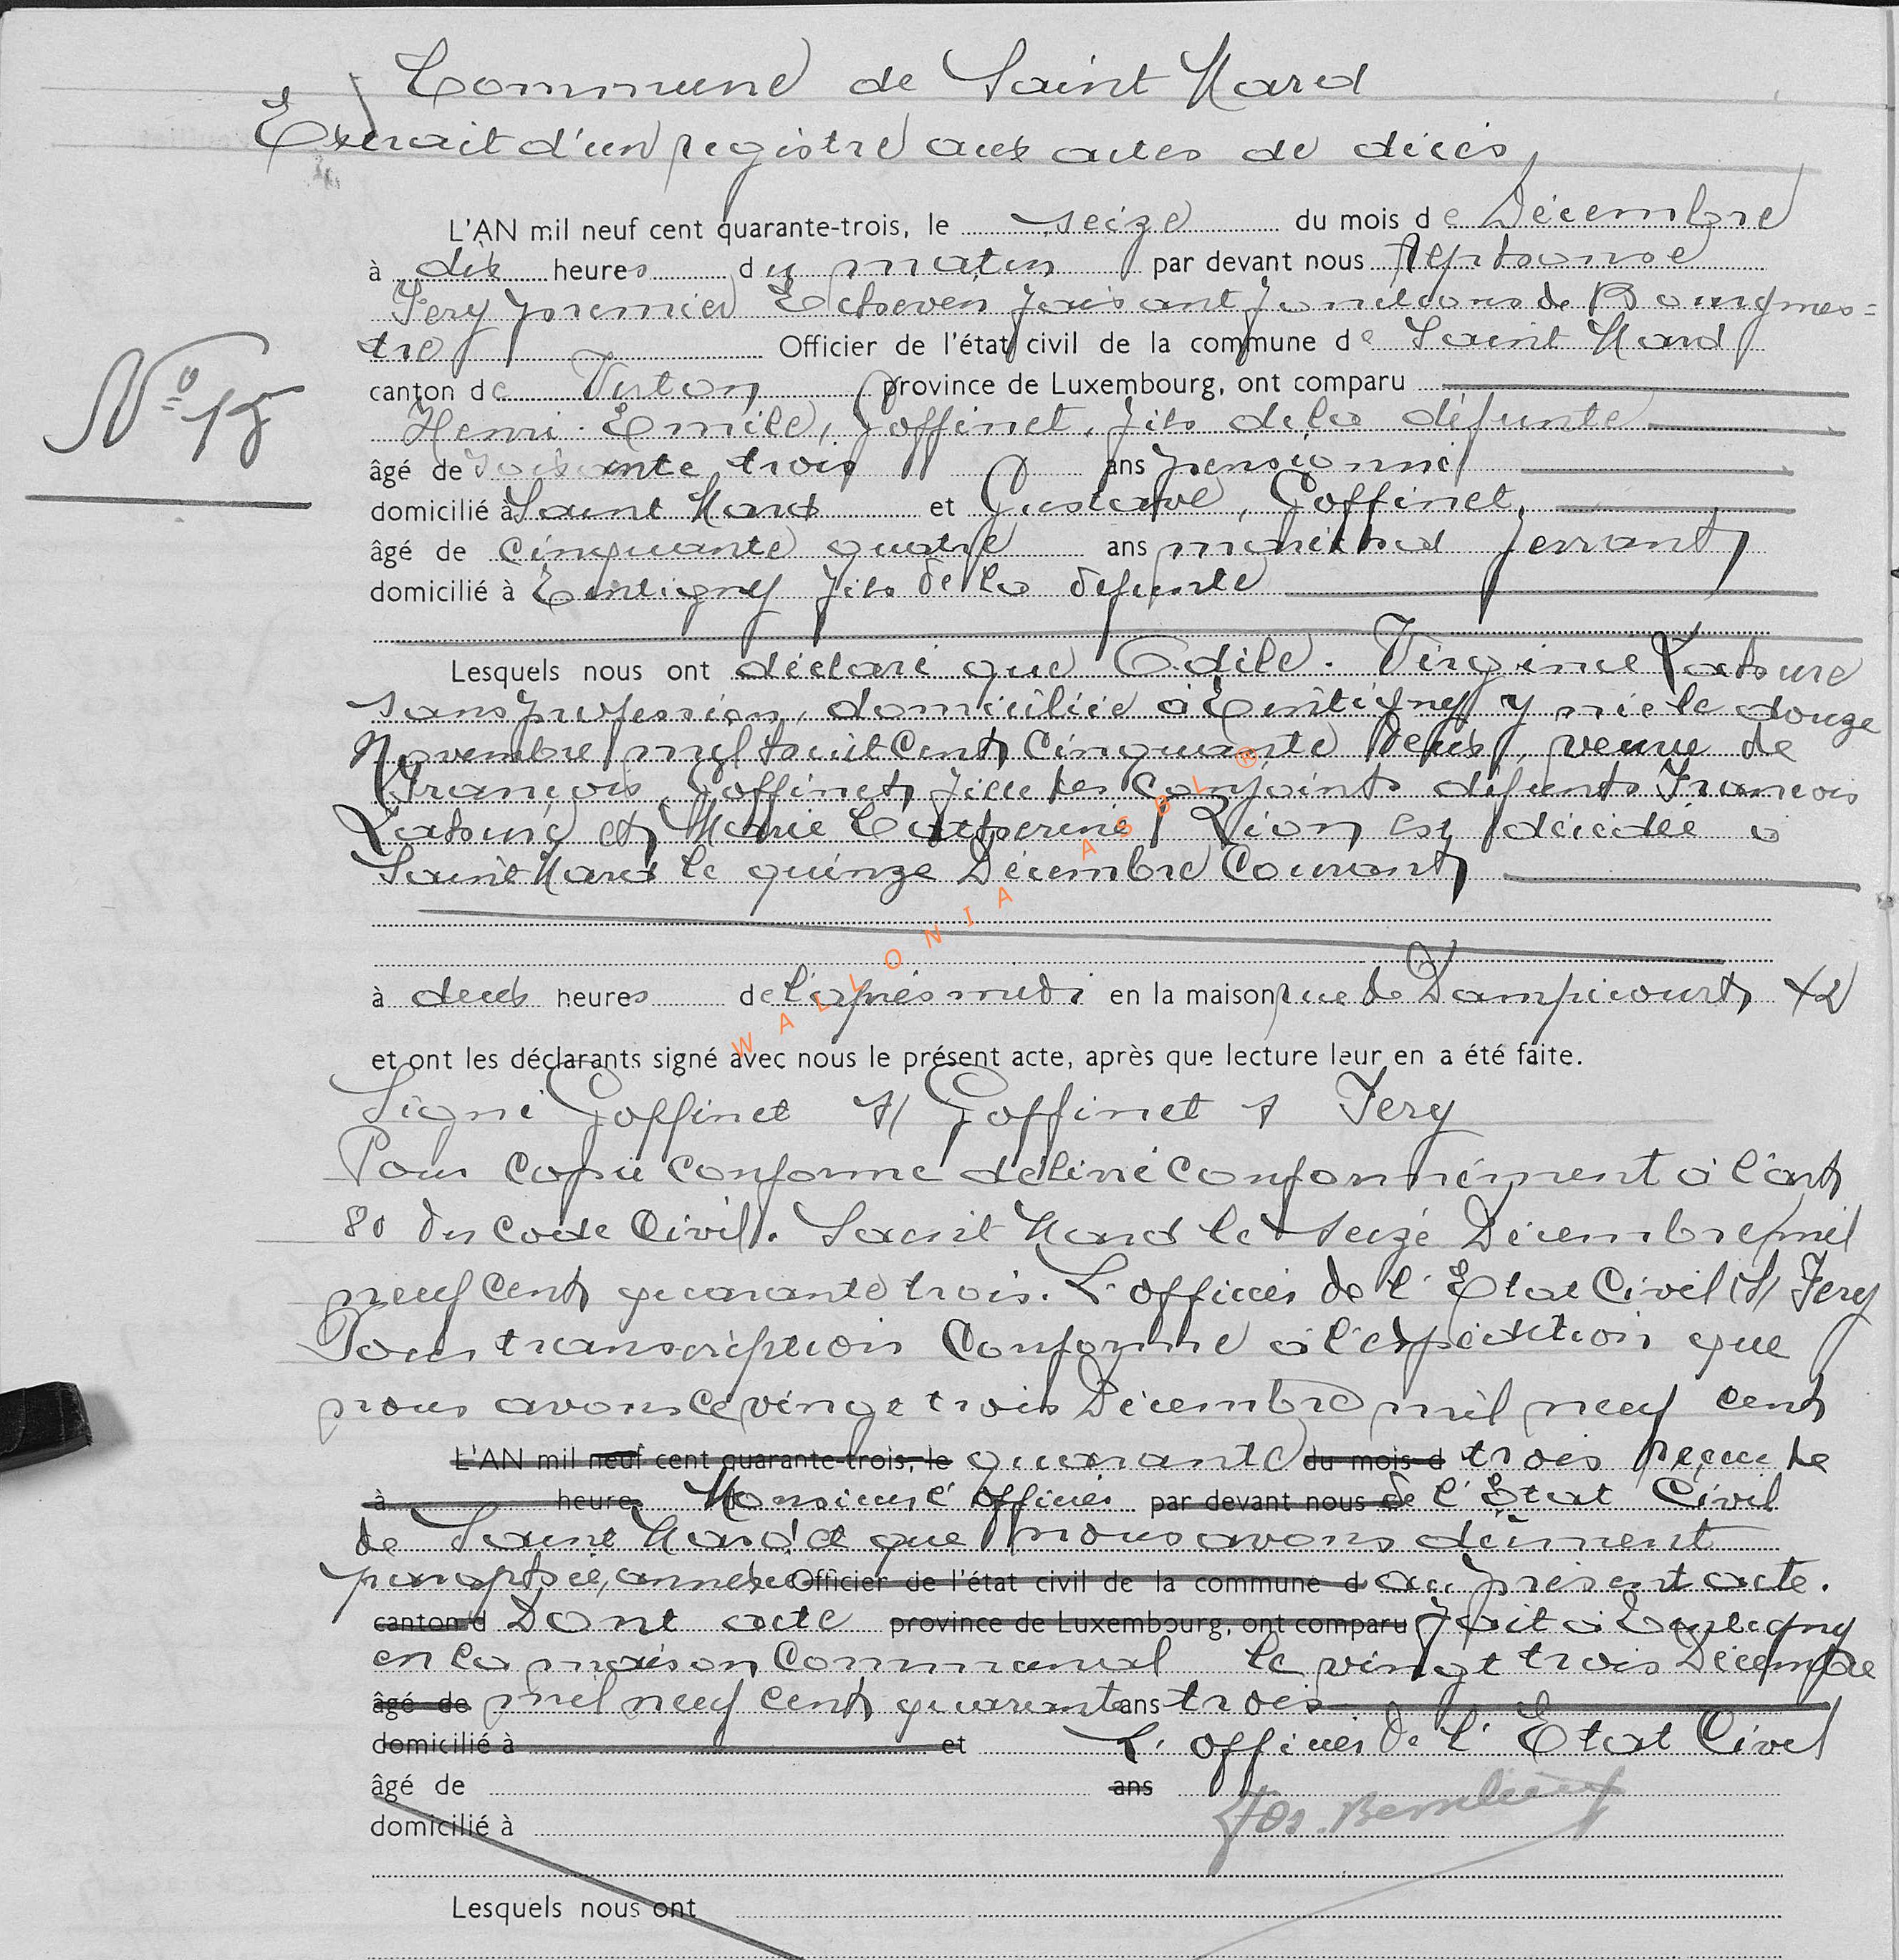 Commune de Saint Mard
Extrait d'un registre aux actes de décès
L'AN mil neuf cent quarante-trois, le seize du mois de Décembre
à dix heures du matin par devant nous Alphonse
Fery premier Echevin faisant fonctions de Bourgmes=
tre Officier de l'état civil de la commune de Saint Mard
canton de Virton province de Luxembourg, ont comparu
Nº 15
Henri. Emile, Goffinet, fils de la défunte
âgé de soixante trois ans pensionné
domicilié à Saint Mard et Gustave, Goffinet,
âgé de cinquante quatre ans maréchal ferrant
domicilié à Tintigny fils de la défunte
Lesquels nous ont déclaré que Odile. Virginie Lahure
sans profession, domiciliée à Tintigny y née le douze
Novembre mil huit cent cinquante deux, veuve de
François Goffinet, fille des conjoints défunts François
Lahure et Marie Catherine Lion est décédée à
Saint Mard le quinze Décembre Courant
à deux heures de l'après midi en la maison rue de Dampicourt, 42
et ont les déclarants signé avec nous le présent acte, après que lecture leur en a été faite.
Signé Goffinet s/ Goffinet s Fery
Pour copie conforme délivré conformément à l'art
80 du Code Civil. Saint Mard le seize Décembre mil
neuf cent quarante trois. L'officier de l'Etat Civil (s/ Fery
Pour transcription Conforme à l'expédition que
nous avons ce vingt trois Décembre mil neuf cent
L'AN mil neuf cent quarante-trois, le quarante du mois d trois reçue de
à heures Monsieur l'officier par devant nous de l'Etat Civil
de Saint Mard et que nous avons dûment
paraphée, annexée Officier de l'état civil de la commune d au présent acte.
canton d Dont acte province de Luxembourg, ont comparu Fait à Tintigny
en la maison Communal le vingt trois Décembre
âgé de mil neuf cent quarante ans trois
domicilié à et L'officier de l'Etat Civil
âgé de ans
Jos.
domicilié à
Lesquels nous ont
WALLONIA ASBL ®